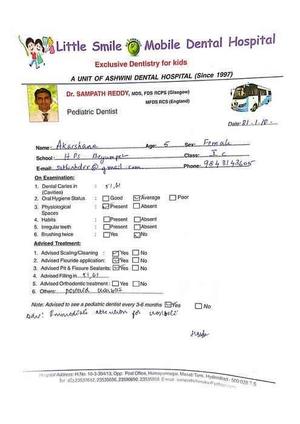 Little Smile Mobile Dental Hospital
Exclusive Dentistry for kids
A UNIT OF ASHWINI DENTAL HOSPITAL (Since 1997)
Dr. SAMPATH REDDY, MDS, FDS RCPS (Glasgow)
MFDS RCS (England)
Pediatric Dentist
Date: 21.1.10.
Name : Akarshana Age: 5 Sex: Female
School : HPS Begumpet Class: I c
E-mail : @gmail.com Phone: 9848143605
On Examination:
1. Dental Caries in : 51,61
(Cavities)
2. Oral Hygiene Status : Good Average Poor
3. Physiological : Present Absent
Spaces
4. Habits : Present Absent
5. Irregular teeth : Present Absent
6. Brushing twice : Yes No
Adviced Treatment:
1. Advised Scaling/Cleaning : Yes No
2. Advised Fluride application: Yes No
3. Advised Pit & Fissure Sealants: Yes No
4. Advised Filling in 51,61
5. Advised Orthodontic treatment : Yes No
6. Others:
Note: Advised to see a pediatric dentist every 3-6 months Yes No
Adv: Immediate attention for
Hospital Address: H.No. 10-3-304/13, Opp. Post Office, Humayunnagar, Masab Tank, Hyderabad - 500 028 T.S